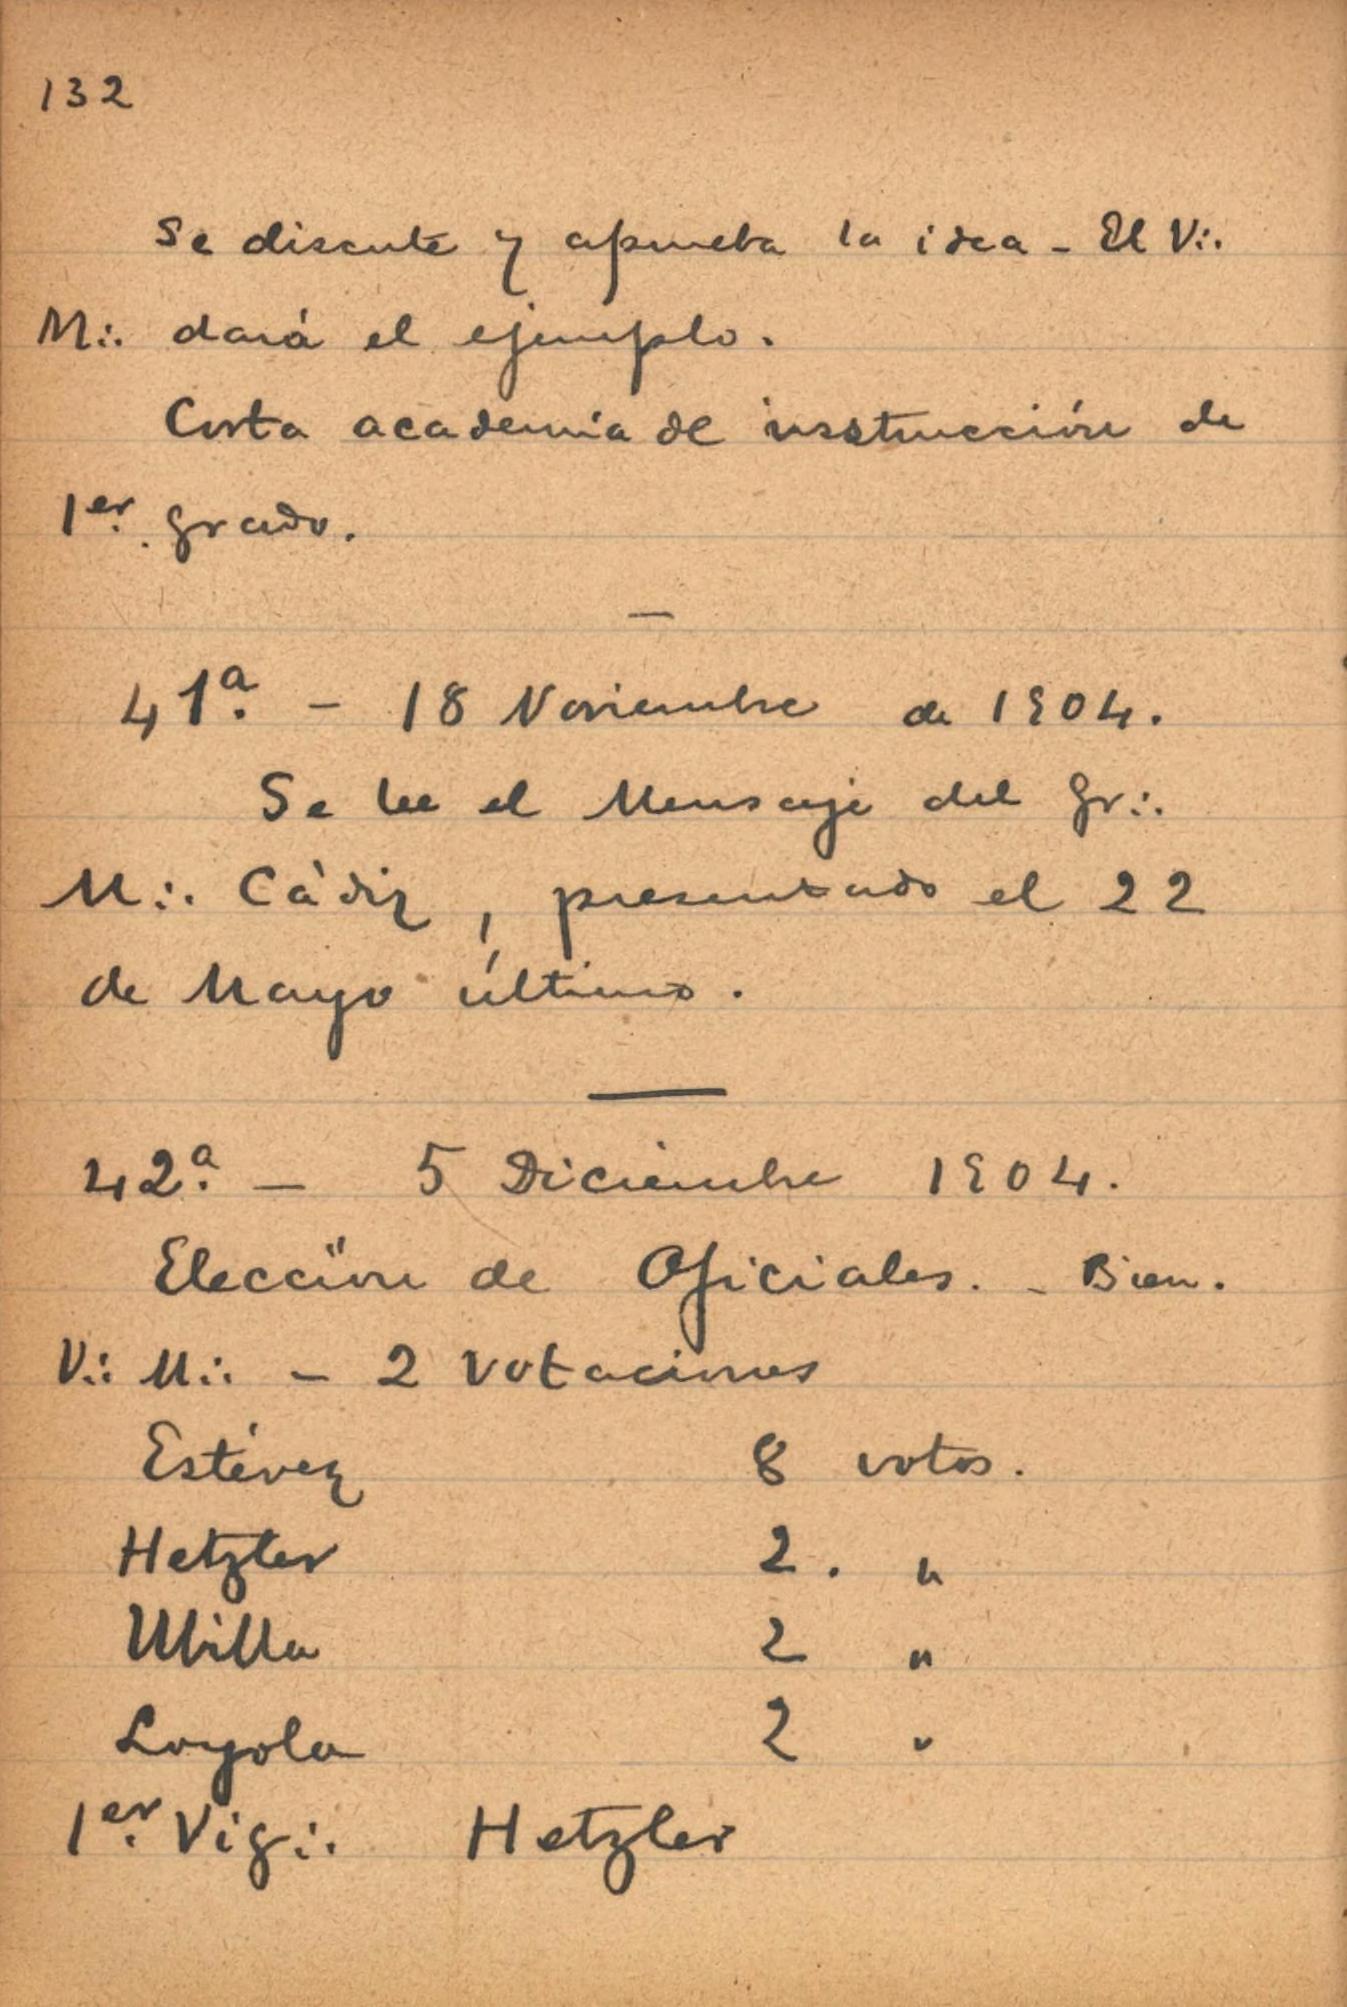 132
Se discute y aprueba la idea - El V∴
M∴ dará el ejemplo.
Corta academia de insstrucción de
1er. grado.
—
41ª. - 18 Noviembre de 1904.
Se lee el Mensaje del Gr∴
M∴ Cádiz, presentado el 22
de Mayo último.
42ª. - 5 Diciembre 1904.
Elección de Oficiales. - Bien.
V∴ M∴ - 2 votaciones
Estévez 8 votos.
Hetzler 2. "
Ubilla 2 "
Loyola 2 "
1er. Vig∴ Hetzler